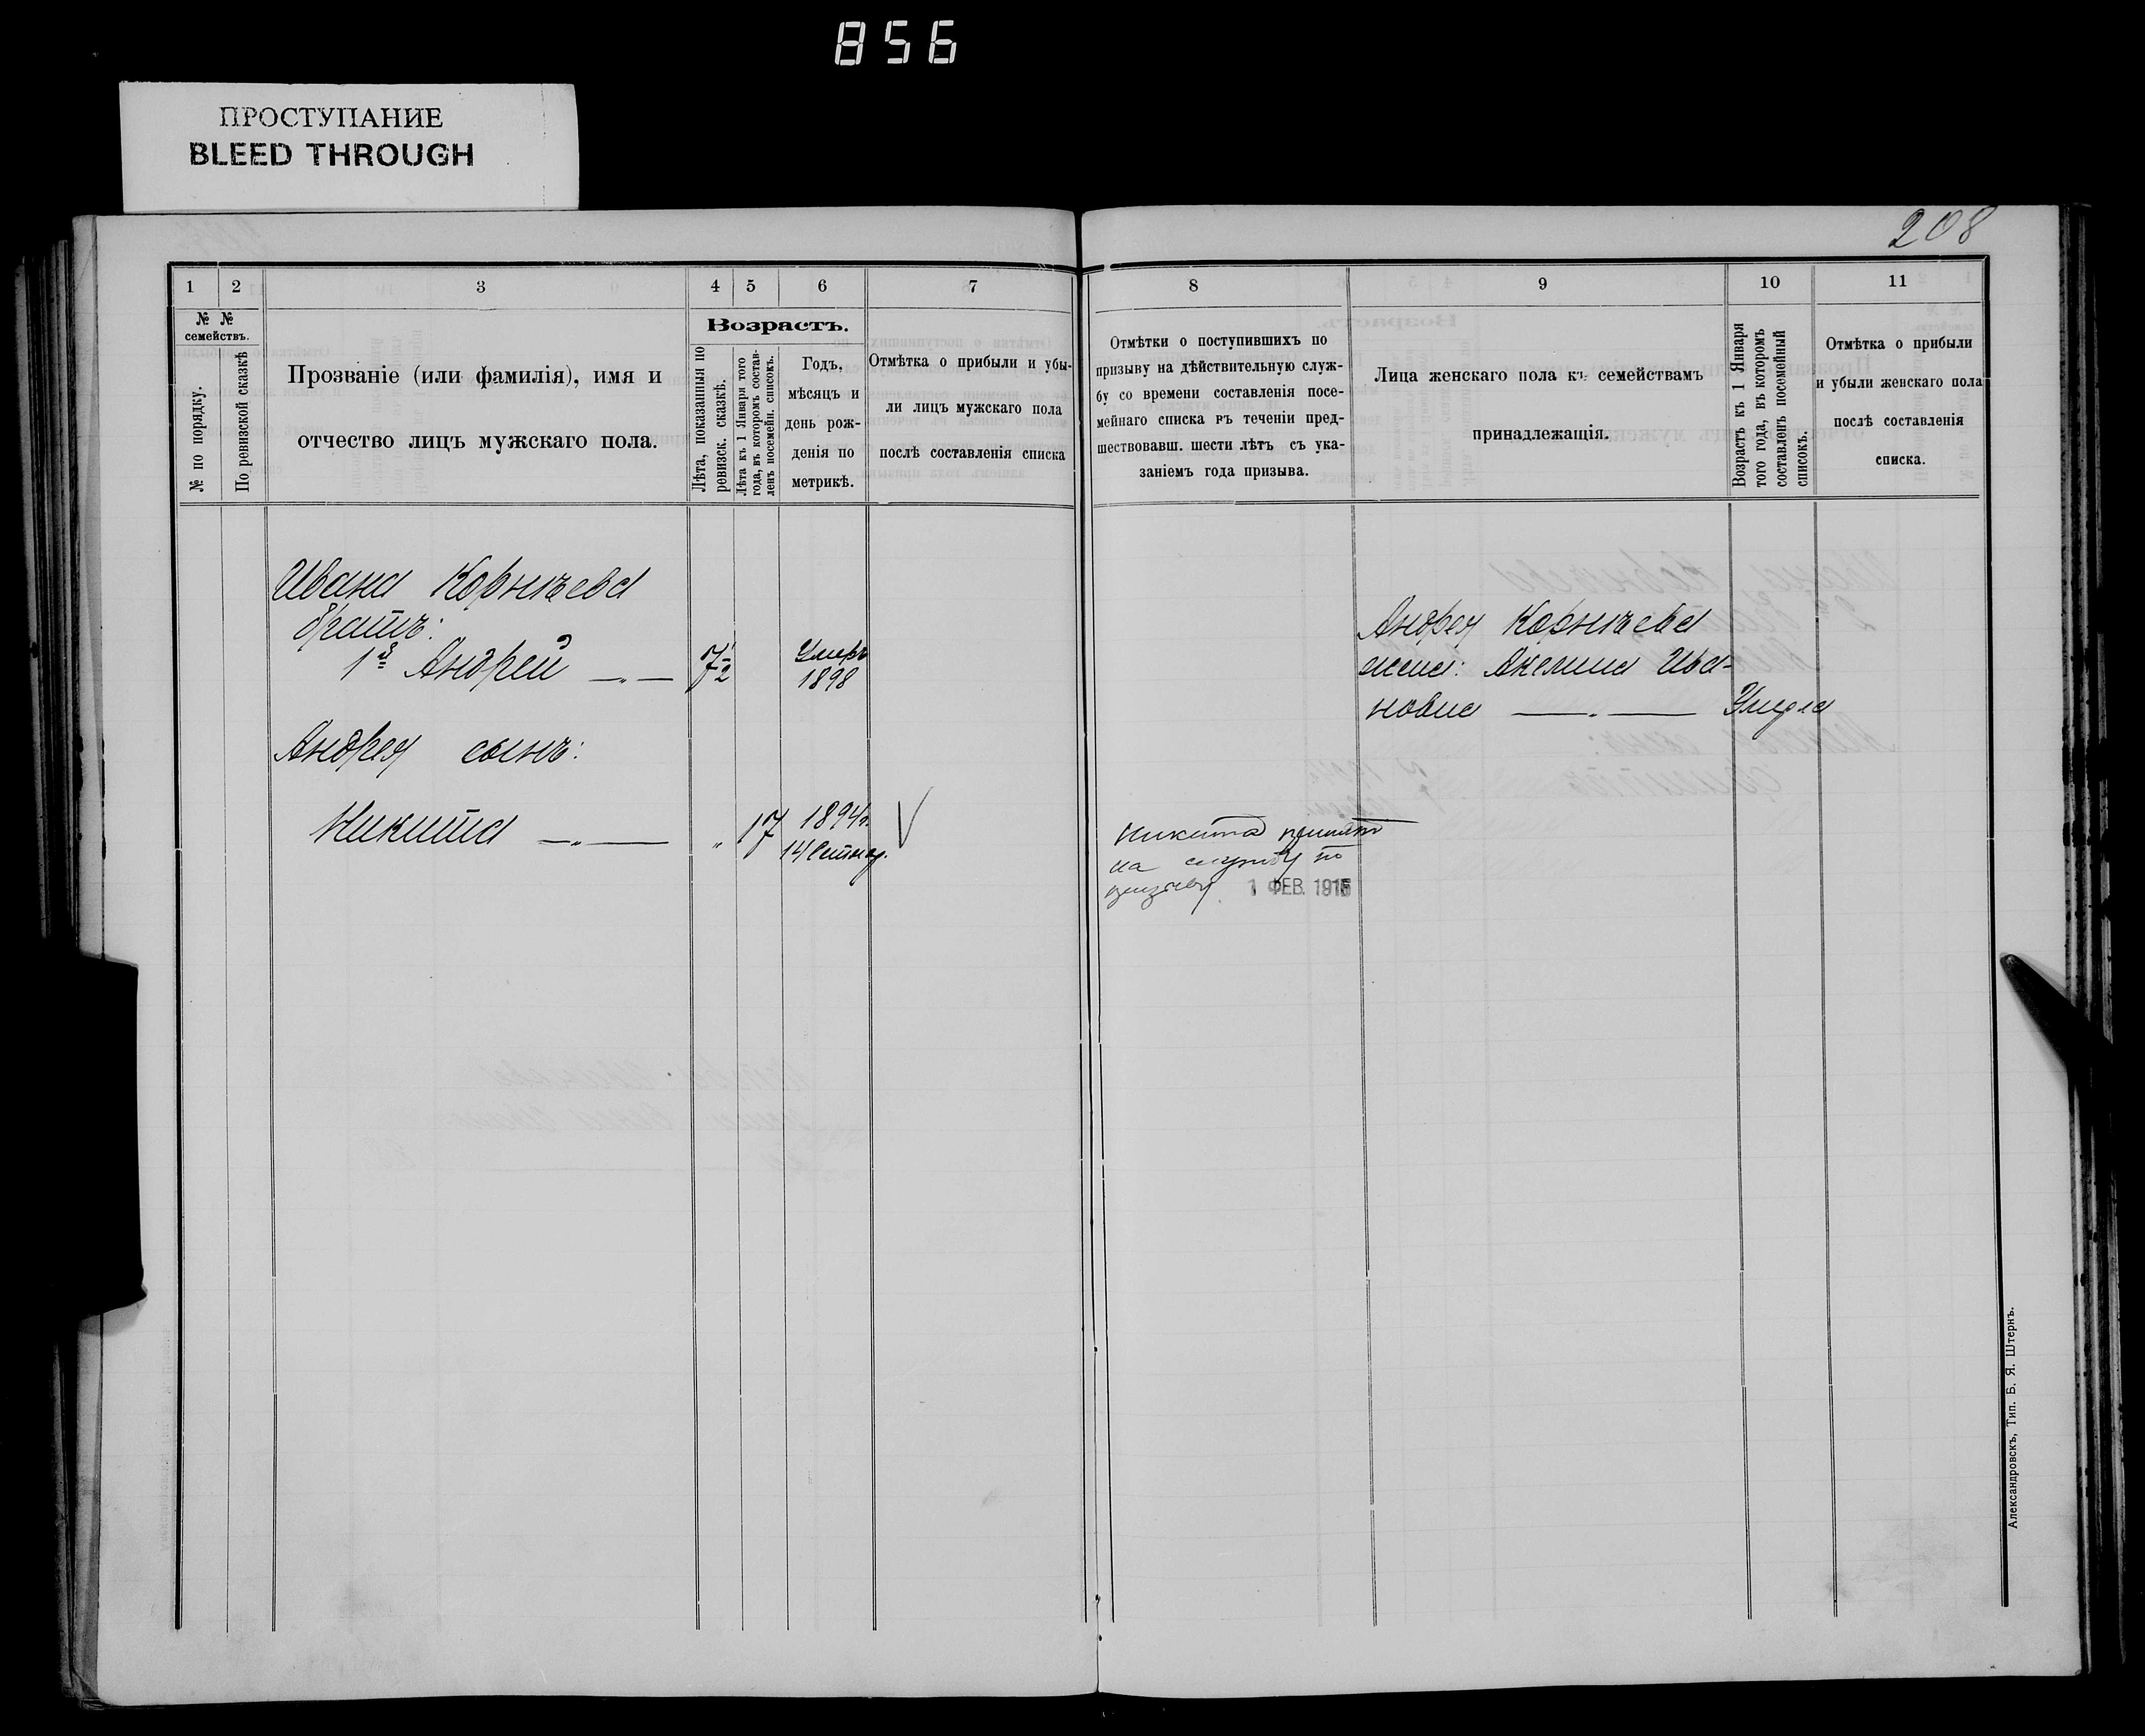 856
ПРОСТУПАНИЕ
BLEED THROUGH
208
1 2 3 4 5 6 7
№ № семействъ.
№ по порядку.
По ревизской сказкѣ
Прозваніе (или фамилія), имя и
отчество лицъ мужскаго пола.
Возрастъ.
Лѣта, показанныя по
ревизск. сказкѣ.
Лѣта къ 1 Января того
года, въ которомъ состав-
ленъ посемейн. списокъ.
Годъ,
мѣсяцъ и
день рож-
денія по
метрикѣ.
Отмѣтка о прибыли и убы-
ли лицъ мужскаго пола
послѣ составленія списка
Ивана Корнѣева
братъ:
1й Андрей 7½ Умеръ
1898
Андрея сынъ:
Никита „ 17 1894г.
14 Сентяб.
8 9 10 11
Отмѣтки о поступившихъ по
призыву на дѣйствительную служ-
бу со времени составленія посе-
мейнаго списка въ теченіи пред-
шествовавш. шести лѣтъ съ ука-
заніемъ года призыва.
Лица женскаго пола къ семействамъ
принадлежащія.
Возрастъ къ 1 Января
того года, въ которомъ
составленъ посемейный
списокъ.
Отмѣтка о прибыли
и убыли женскаго пола
послѣ составленія
списка.
Андрея Корнѣева
жена: Акелина Ива-
новна Умерла
Никита принятъ
на службу по
призыву 1 ФЕВ. 1915
Александровскъ, Тип. Б. Я. Штернъ.